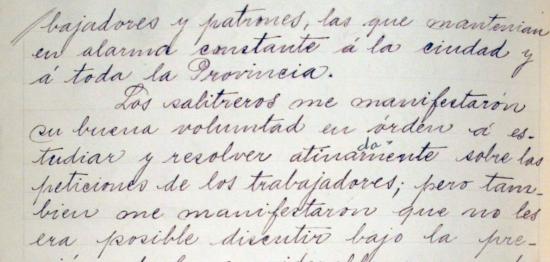 bajadores y patrones, las que mantenian
en alarma constante á la ciudad y
á toda la Provincia.
Los salitreros me manifestarón
su buena voluntad en órden á es-
tudiar y resolver atinadamente sobre las
peticiones de los trabajadores; pero tam-
bien me manifestaron que no les
era posible discutir bajo la pre-